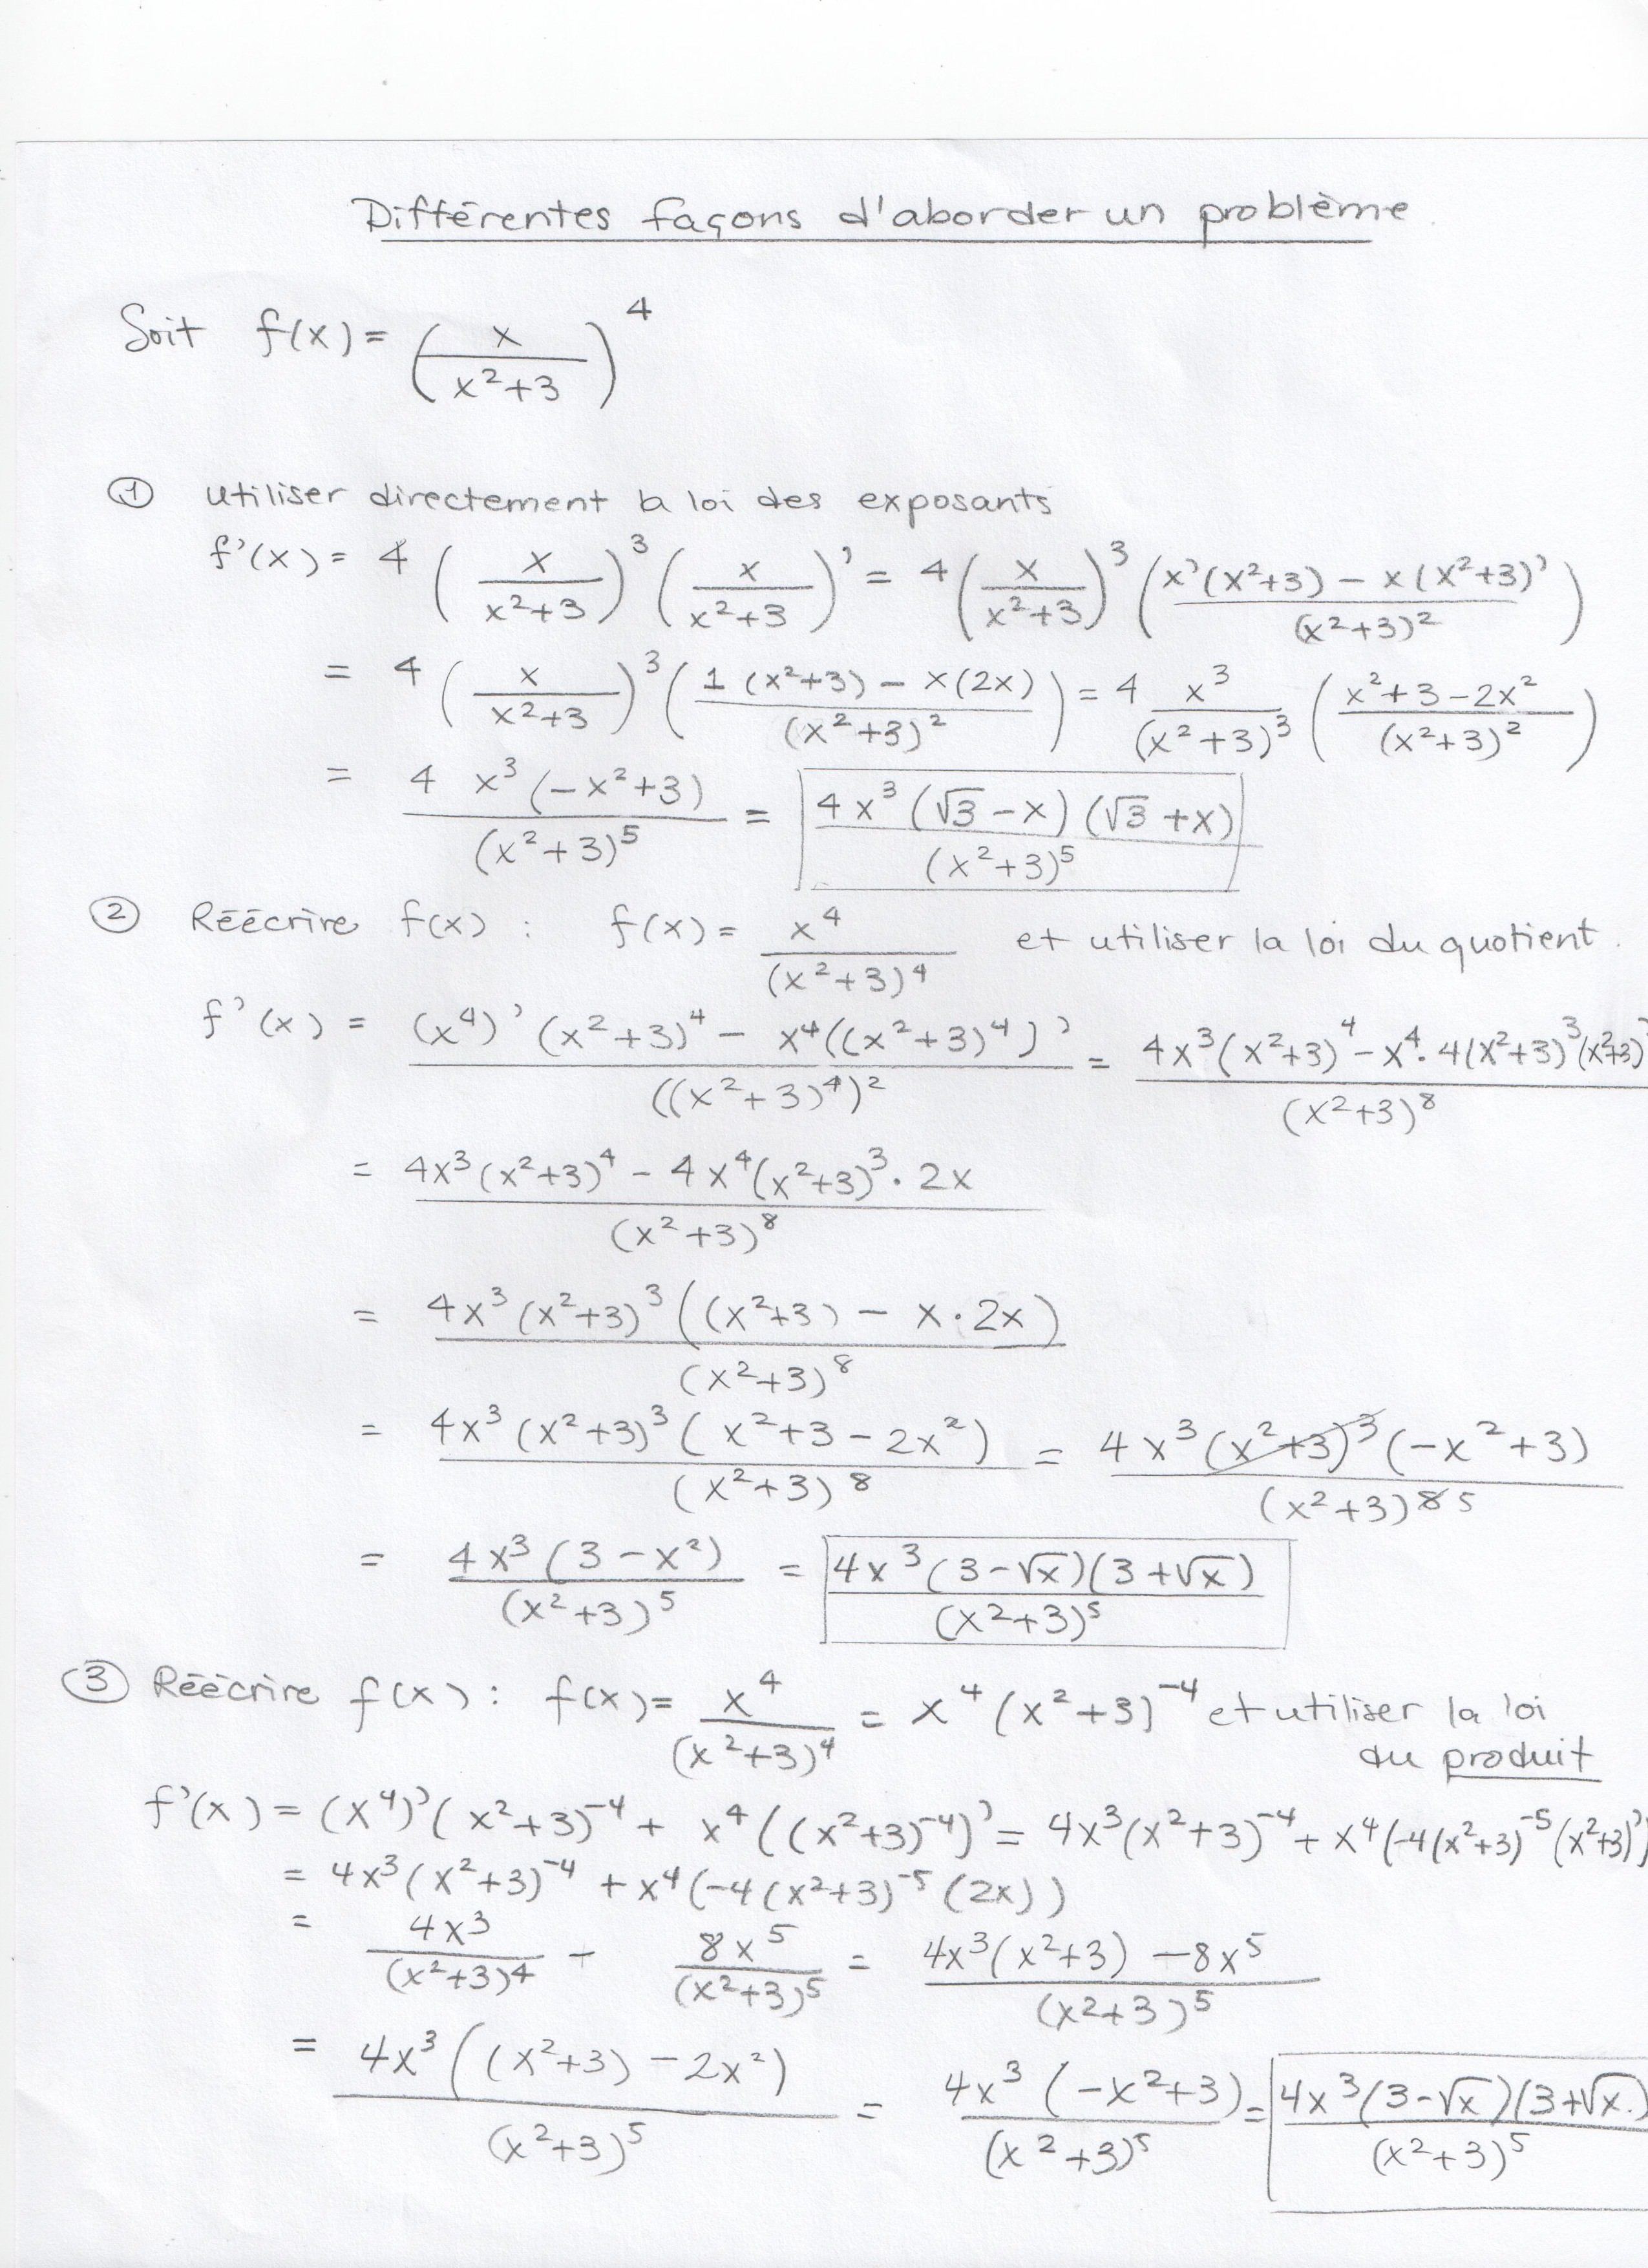 Différentes façons d'aborder un problème.
Soit f(x) = (x/(x²+3))⁴
① utiliser directement la loi des exposants
f'(x) = 4 (x/(x²+3))³ (x/(x²+3))' = 4 (x/(x²+3))³ ((x'(x²+3) − x(x²+3)')/(x²+3)²)
= 4 (x/(x²+3))³ ((1(x²+3) − x(2x))/(x²+3)²) = 4 x³/(x²+3)³ ((x²+3−2x²)/(x²+3)²)
= 4 x³(−x²+3)/(x²+3)⁵ = 4x³(√3−x)(√3+x)/(x²+3)⁵
② Réécrire f(x) : f(x) = x⁴/(x²+3)⁴ et utiliser la loi du quotient.
f'(x) = ((x⁴)'(x²+3)⁴ − x⁴((x²+3)⁴)')/((x²+3)⁴)² = (4x³(x²+3)⁴ − x⁴·4(x²+3)³(x²+3)')/(x²+3)⁸
= (4x³(x²+3)⁴ − 4x⁴(x²+3)³·2x)/(x²+3)⁸
= 4x³(x²+3)³((x²+3) − x·2x)/(x²+3)⁸
= 4x³(x²+3)³(x²+3−2x²)/(x²+3)⁸ = 4x³(x²+3)³(−x²+3)/(x²+3)⁸ ⁵
= 4x³(3−x²)/(x²+3)⁵ = 4x³(3−√x)(3+√x)/(x²+3)⁵
③ Réécrire f(x) : f(x) = x⁴/(x²+3)⁴ = x⁴(x²+3)⁻⁴ et utiliser la loi
du produit
f'(x) = (x⁴)'(x²+3)⁻⁴ + x⁴((x²+3)⁻⁴)' = 4x³(x²+3)⁻⁴ + x⁴(−4(x²+3)⁻⁵(x²+3)')
= 4x³(x²+3)⁻⁴ + x⁴(−4(x²+3)⁻⁵(2x))
= 4x³/(x²+3)⁴ − 8x⁵/(x²+3)⁵ = (4x³(x²+3) − 8x⁵)/(x²+3)⁵
= 4x³((x²+3) − 2x²)/(x²+3)⁵ = 4x³(−x²+3)/(x²+3)⁵ = 4x³(3−√x)(3+√x)/(x²+3)⁵